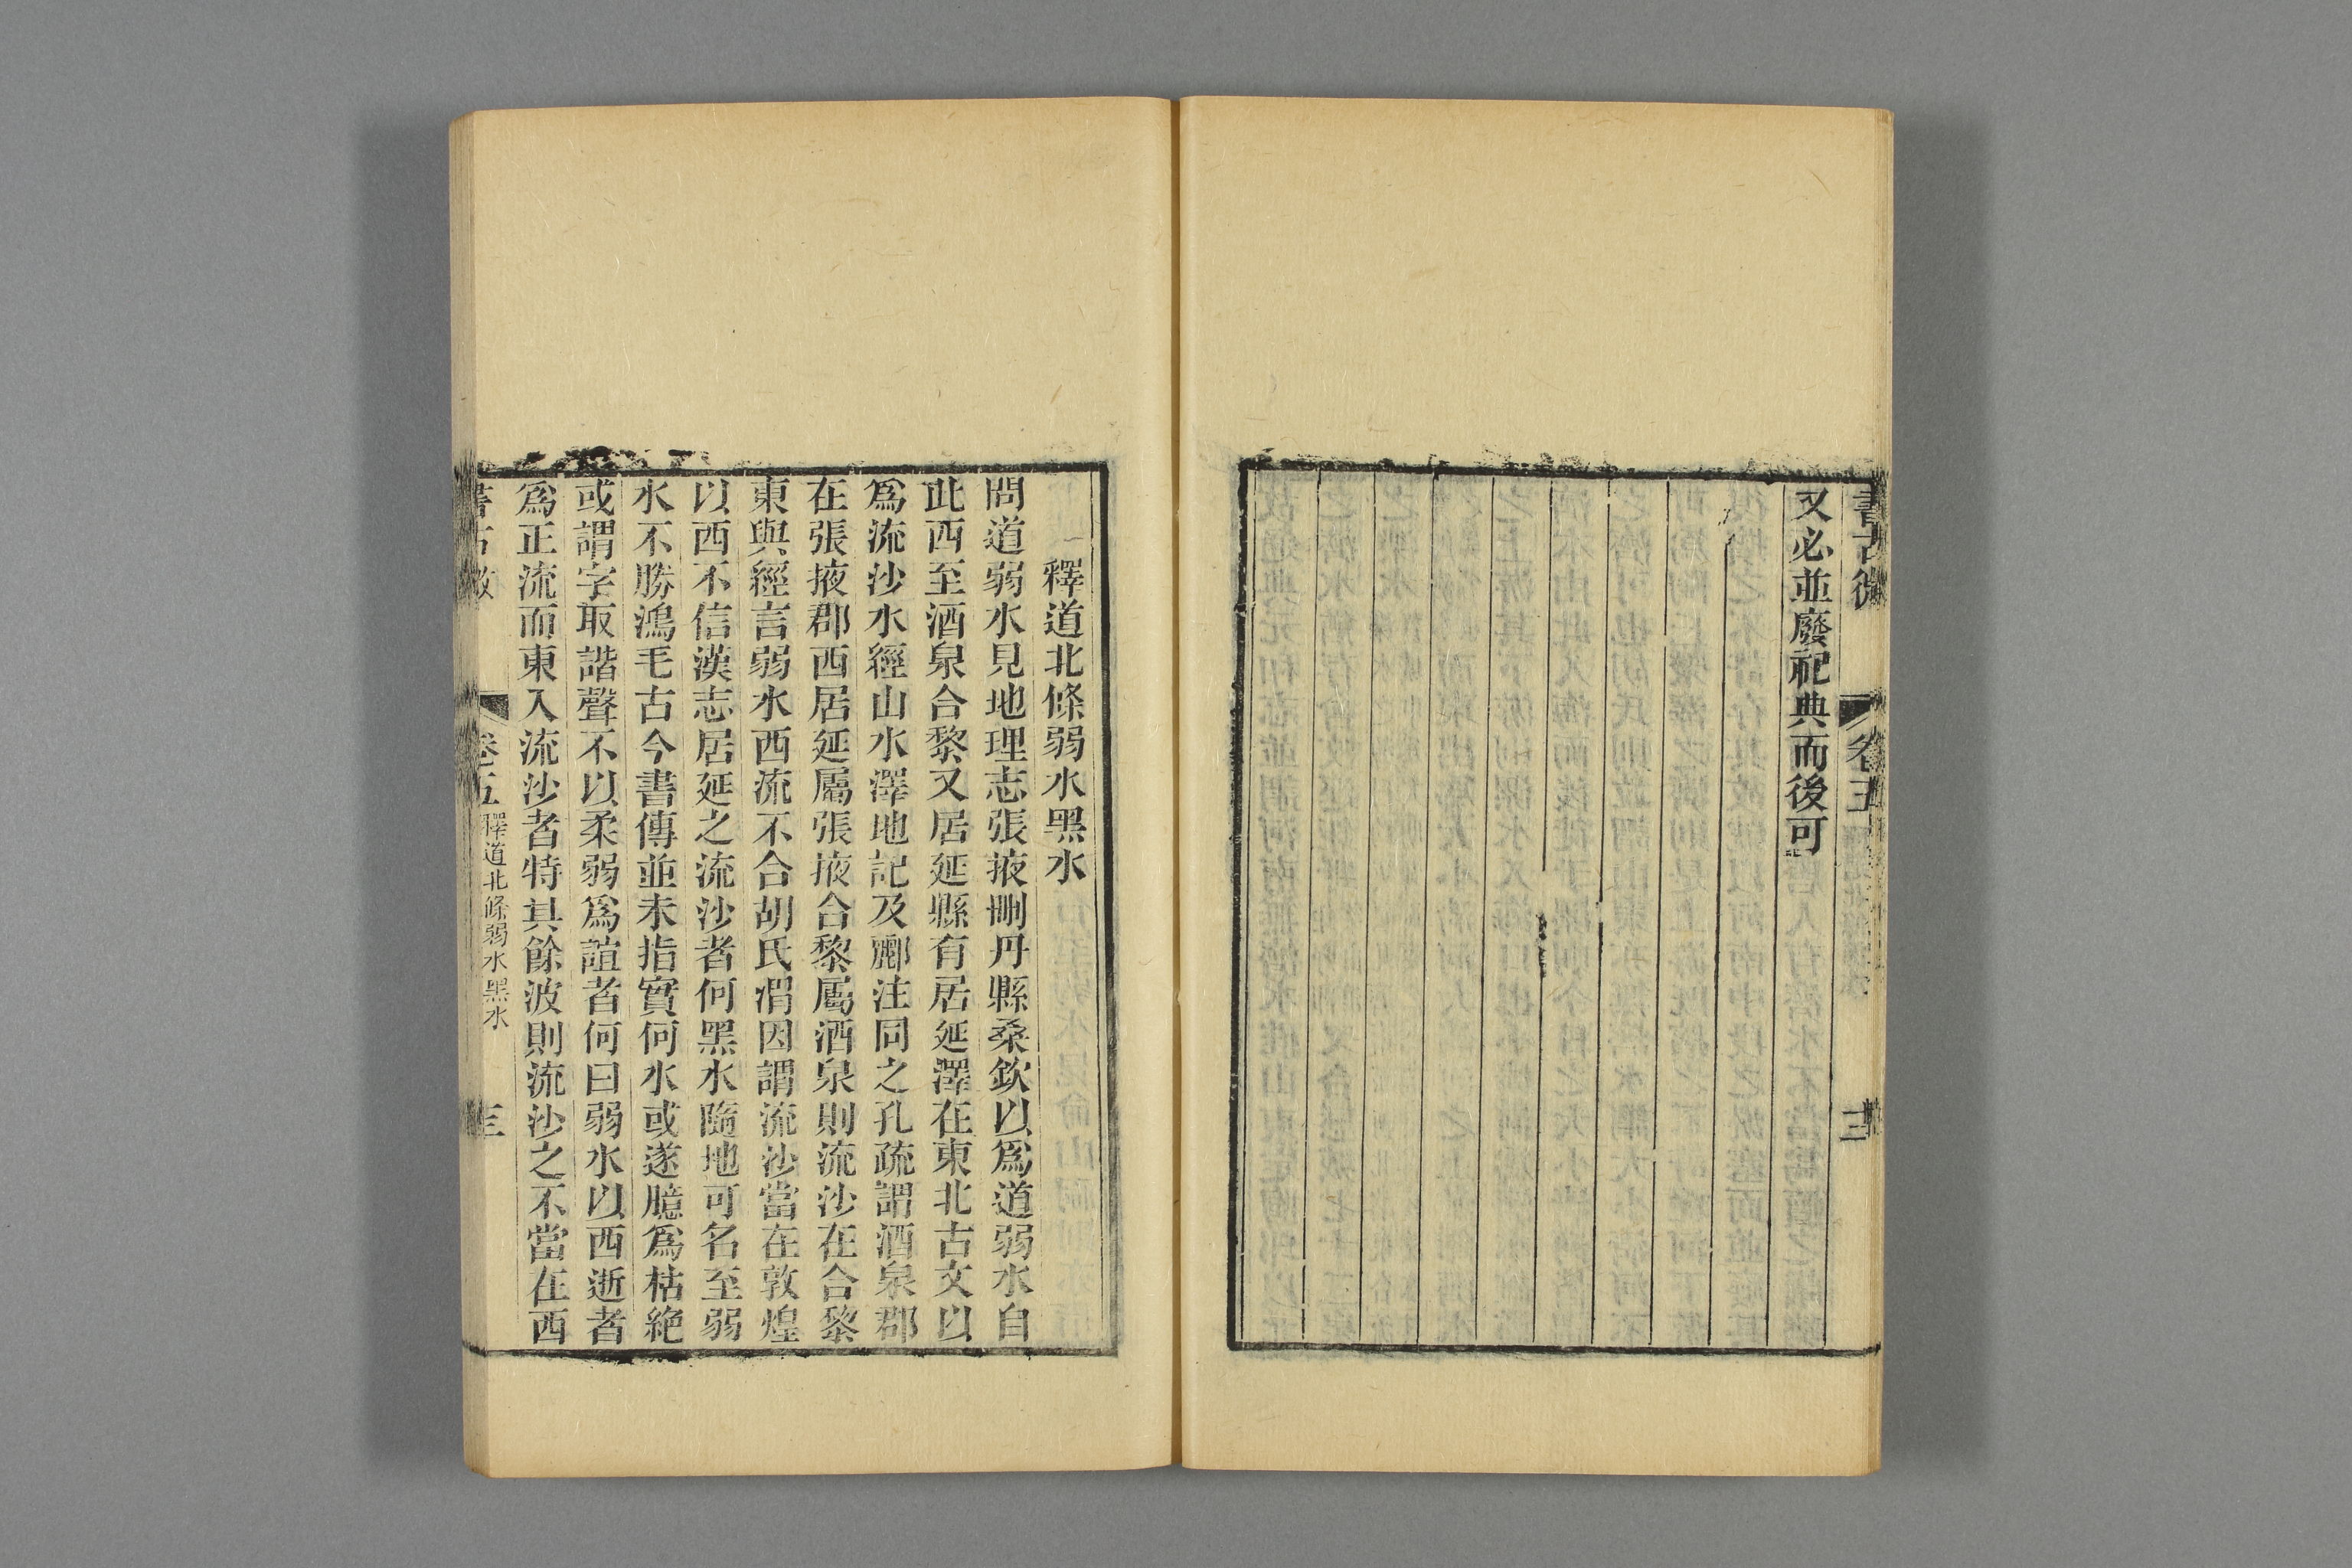 書古微
卷五
又必並廢祀典而後可
釋道北條弱水黑水
問道弱水見地理志張掖刪丹縣桑欽以爲道弱水自
此西至酒泉合黎又居延縣有居延澤在東北古文以
爲流沙水經山水澤地記及酈注同之孔疏謂酒泉郡
在張掖郡西居延屬張掖合黎屬酒泉則流沙在合黎
東與經言弱水西流不合胡氏渭因謂流沙當在敦煌
以西不信漢志居延之流沙者何黑水隨地可名至弱
水不勝鴻毛古今書傳並未指實何水或遂臆爲枯絶
或謂字取諧聲不以柔弱爲誼者何曰弱水以西逝者
爲正流而東入流沙者特其餘波則流沙之不當在西
書古微
卷五
釋道北條弱水黑水